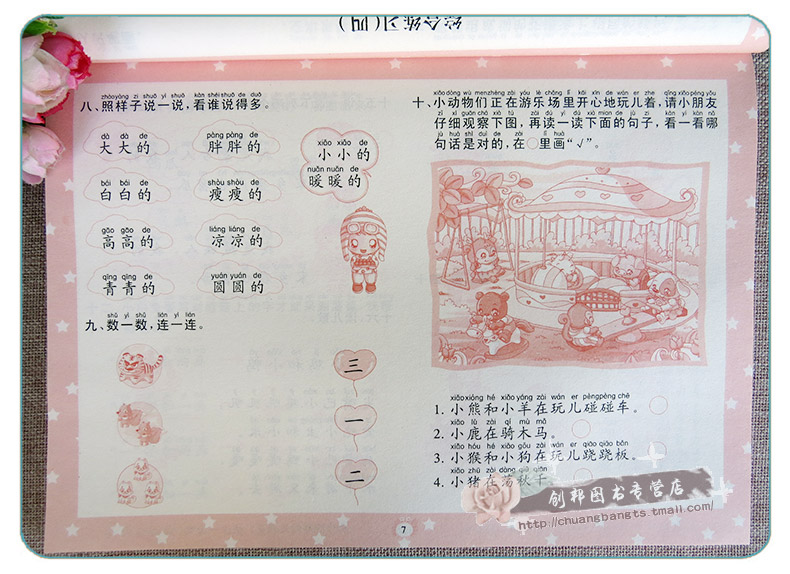 综合练习(四)
zhào yàng zi shuō yì shuō kàn shéi shuō de duō
八、照样子说一说,看谁说得多。
dà dà de
大大的
pàng pàng de
胖胖的
xiǎo xiǎo de
小小的
nuǎn nuǎn de
暖暖的
bái bái de
白白的
shòu shòu de
瘦瘦的
gāo gāo de
高高的
liáng liáng de
凉凉的
qīng qīng de
青青的
yuán yuán de
圆圆的
shǔ yì shǔ lián yì lián
九、数一数,连一连。
三
一
二
xiǎo dòng wù men zhèng zài yóu lè chǎng lǐ kāi xīn de wán er zhe qǐng xiǎo péng yǒu
十、小动物们正在游乐场里开心地玩儿着,请小朋友
zǐ xì guān chá xià tú zài dú yì dú xià miàn de jù zi kàn yí kàn nǎ
仔细观察下图,再读一读下面的句子,看一看哪
jù huà shì duì de zài lǐ huà
句话是对的,在○里画“√”。
xiǎo xióng hé xiǎo yáng zài wán er pèng pèng chē
1. 小熊和小羊在玩儿碰碰车。
xiǎo lù zài qí mù mǎ
2. 小鹿在骑木马。
xiǎo hóu hé xiǎo gǒu zài wán er qiāo qiāo bǎn
3. 小猴和小狗在玩儿跷跷板。
xiǎo zhū zài dàng qiū qiān
4. 小猪在荡秋千
创邦图书专营店
http://chuangbangts.tmall.com/
7